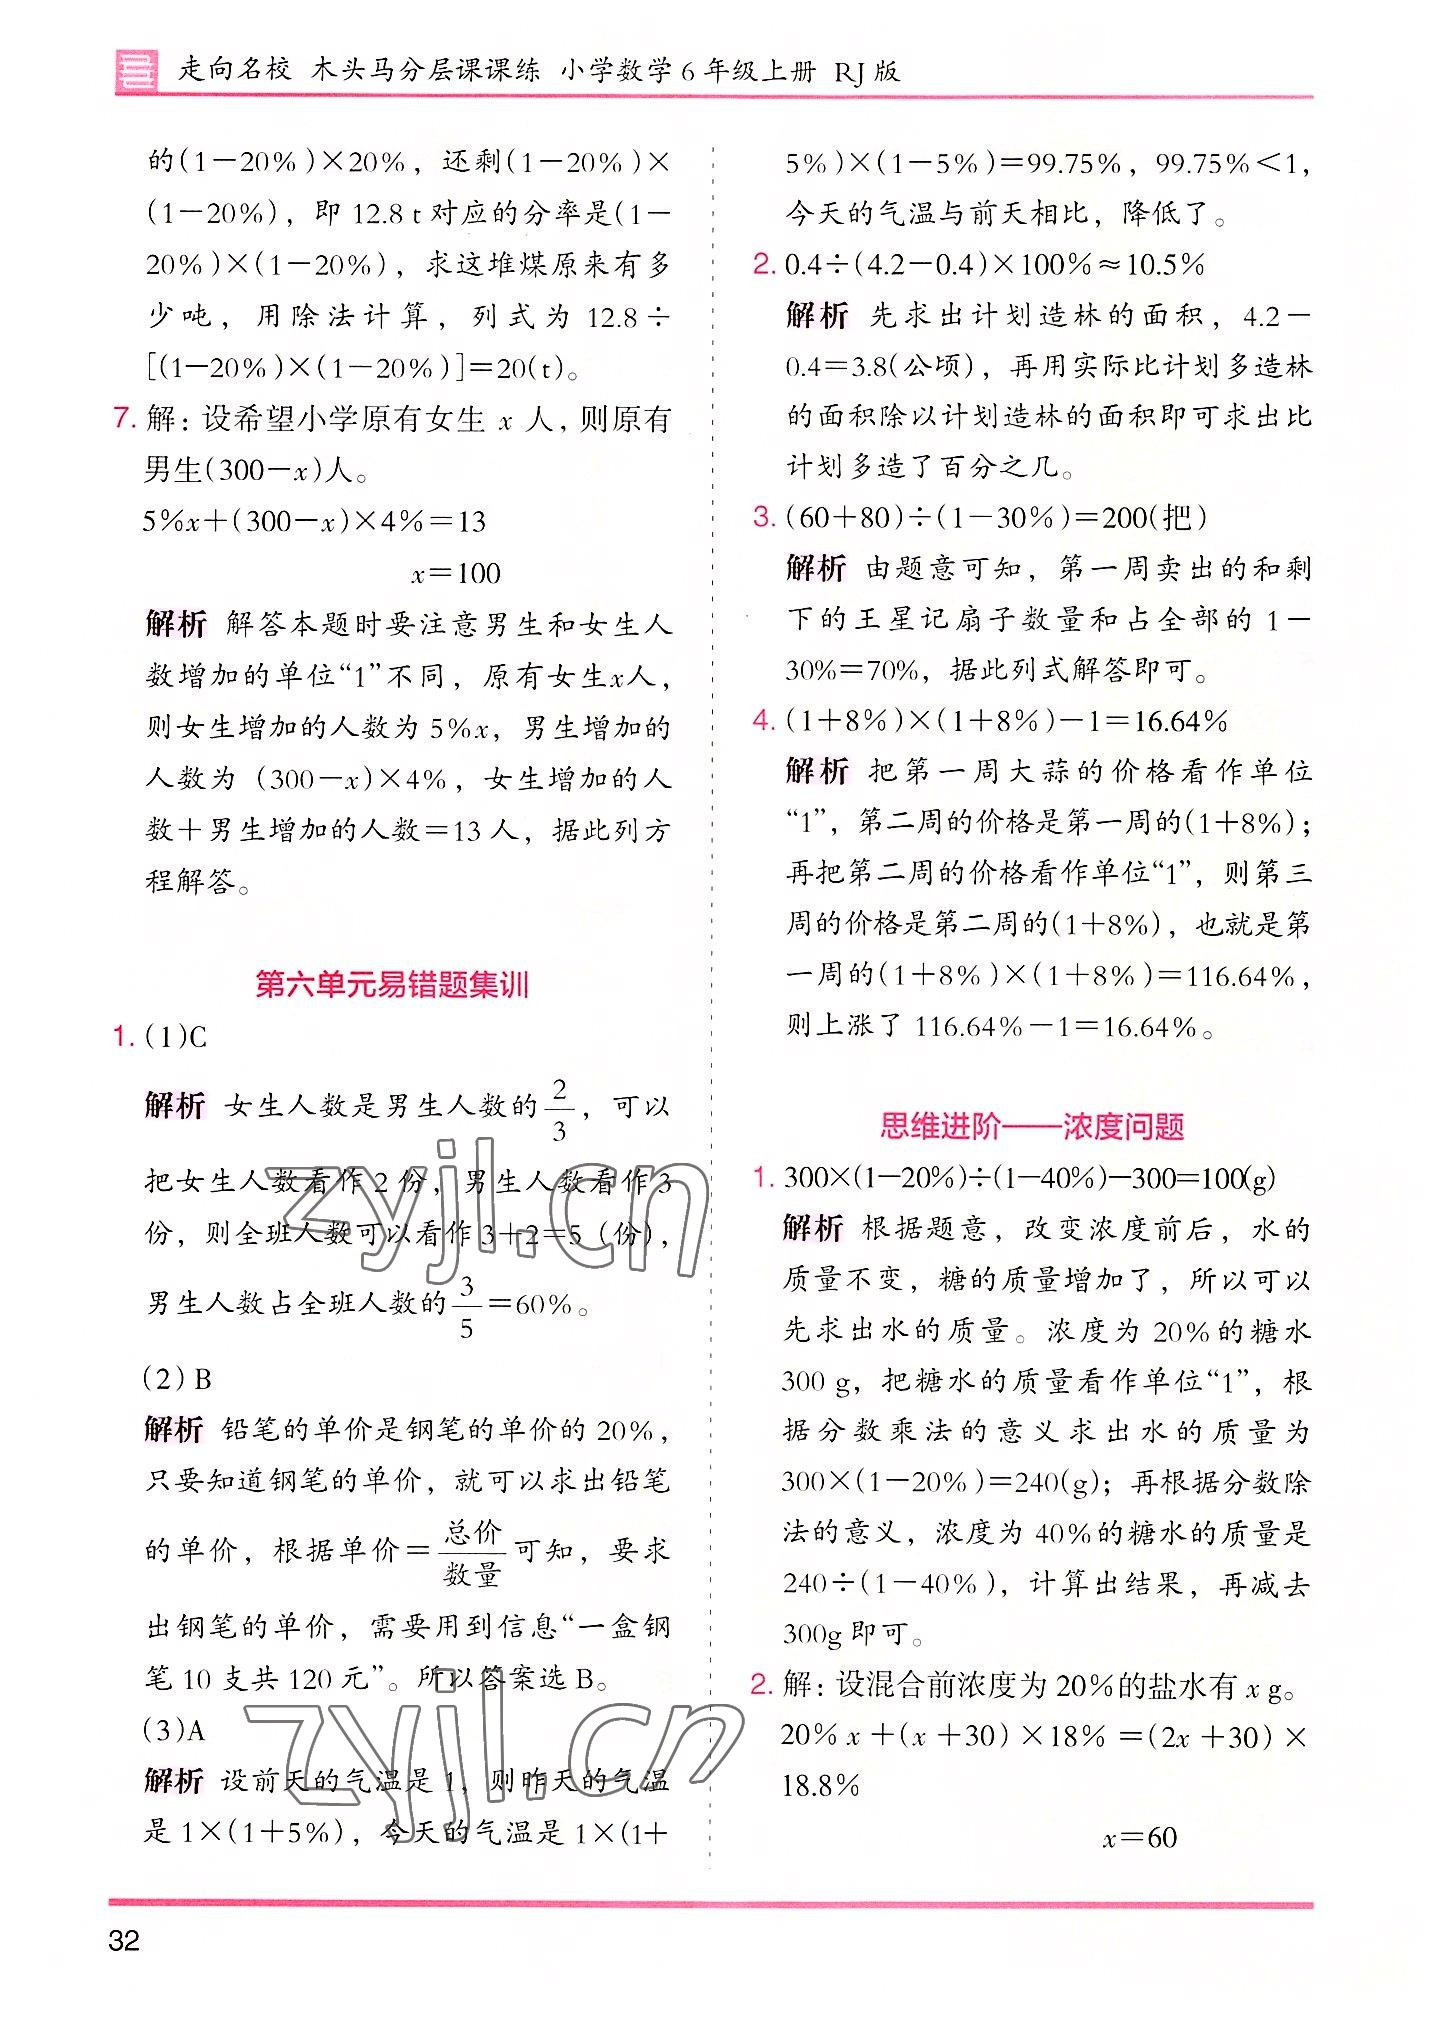 走向名校 木头马分层课课练 小学数学6年级上册 RJ版
的(1－20%)×20%，还剩(1－20%)×
(1－20%)，即 12.8 t 对应的分率是(1－
20%)×(1－20%)，求这堆煤原来有多
少吨，用除法计算，列式为 12.8÷
[(1－20%)×(1－20%)]＝20(t)。
7. 解：设希望小学原有女生 x 人，则原有
男生(300－x)人。
5%x＋(300－x)×4%＝13
x＝100
解析 解答本题时要注意男生和女生人
数增加的单位“1”不同，原有女生x人，
则女生增加的人数为 5%x，男生增加的
人数为 (300－x)×4%，女生增加的人
数＋男生增加的人数＝13人，据此列方
程解答。
第六单元易错题集训
1. (1)C
解析 女生人数是男生人数的2/3，可以
把女生人数看作2份，男生人数看作3
份，则全班人数可以看作3+2=5（份），
男生人数占全班人数的3/5＝60%。
(2) B
解析 铅笔的单价是钢笔的单价的20%，
只要知道钢笔的单价，就可以求出铅笔
的单价，根据单价＝总价/数量可知，要求
出钢笔的单价，需要用到信息“一盒钢
笔10支共120元”。所以答案选B。
(3)A
解析 设前天的气温是1，则昨天的气温
是1×(1＋5%)，今天的气温是1×(1＋
5%)×(1－5%)＝99.75%，99.75%＜1，
今天的气温与前天相比，降低了。
2. 0.4÷(4.2－0.4)×100%≈10.5%
解析 先求出计划造林的面积，4.2－
0.4＝3.8(公顷)，再用实际比计划多造林
的面积除以计划造林的面积即可求出比
计划多造了百分之几。
3. (60＋80)÷(1－30%)＝200(把)
解析 由题意可知，第一周卖出的和剩
下的王星记扇子数量和占全部的 1－
30%＝70%，据此列式解答即可。
4. (1＋8%)×(1＋8%)－1＝16.64%
解析 把第一周大蒜的价格看作单位
“1”，第二周的价格是第一周的(1＋8%)；
再把第二周的价格看作单位“1”，则第三
周的价格是第二周的(1＋8%)，也就是第
一周的(1＋8%)×(1＋8%)＝116.64%，
则上涨了 116.64%－1＝16.64%。
思维进阶——浓度问题
1. 300×(1－20%)÷(1－40%)－300＝100(g)
解析 根据题意，改变浓度前后，水的
质量不变，糖的质量增加了，所以可以
先求出水的质量。浓度为20%的糖水
300 g，把糖水的质量看作单位“1”，根
据分数乘法的意义求出水的质量为
300×(1－20%)＝240(g)；再根据分数除
法的意义，浓度为40%的糖水的质量是
240÷(1－40%)，计算出结果，再减去
300g即可。
2. 解：设混合前浓度为20%的盐水有 x g。
20% x＋(x＋30)×18%＝(2x＋30)×
18.8%
x＝60
32
zyjl.cn
zyjl.cn